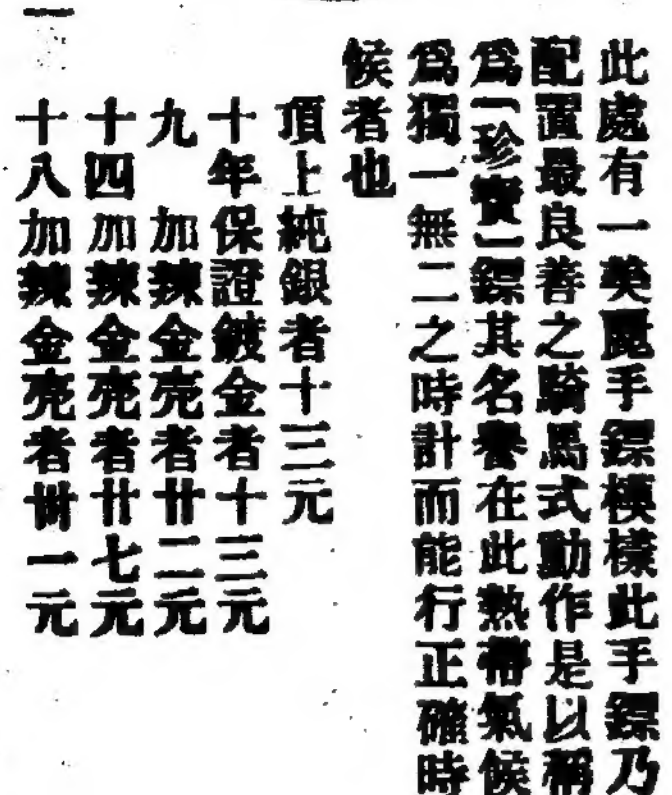 此處有一美麗手鏢模樣此手鏢乃
配置最良善之騎馬式動作是以稱
爲「珍寶」鏢其名譽在此熱帶氣候
爲獨一無二之時計而能行正確時
候者也
頂上純銀者十三元
十年保證鍍金者十三元
九 加辣金壳者廿二元
十四加辣金壳者廿七元
十八加辣金壳者卌一元